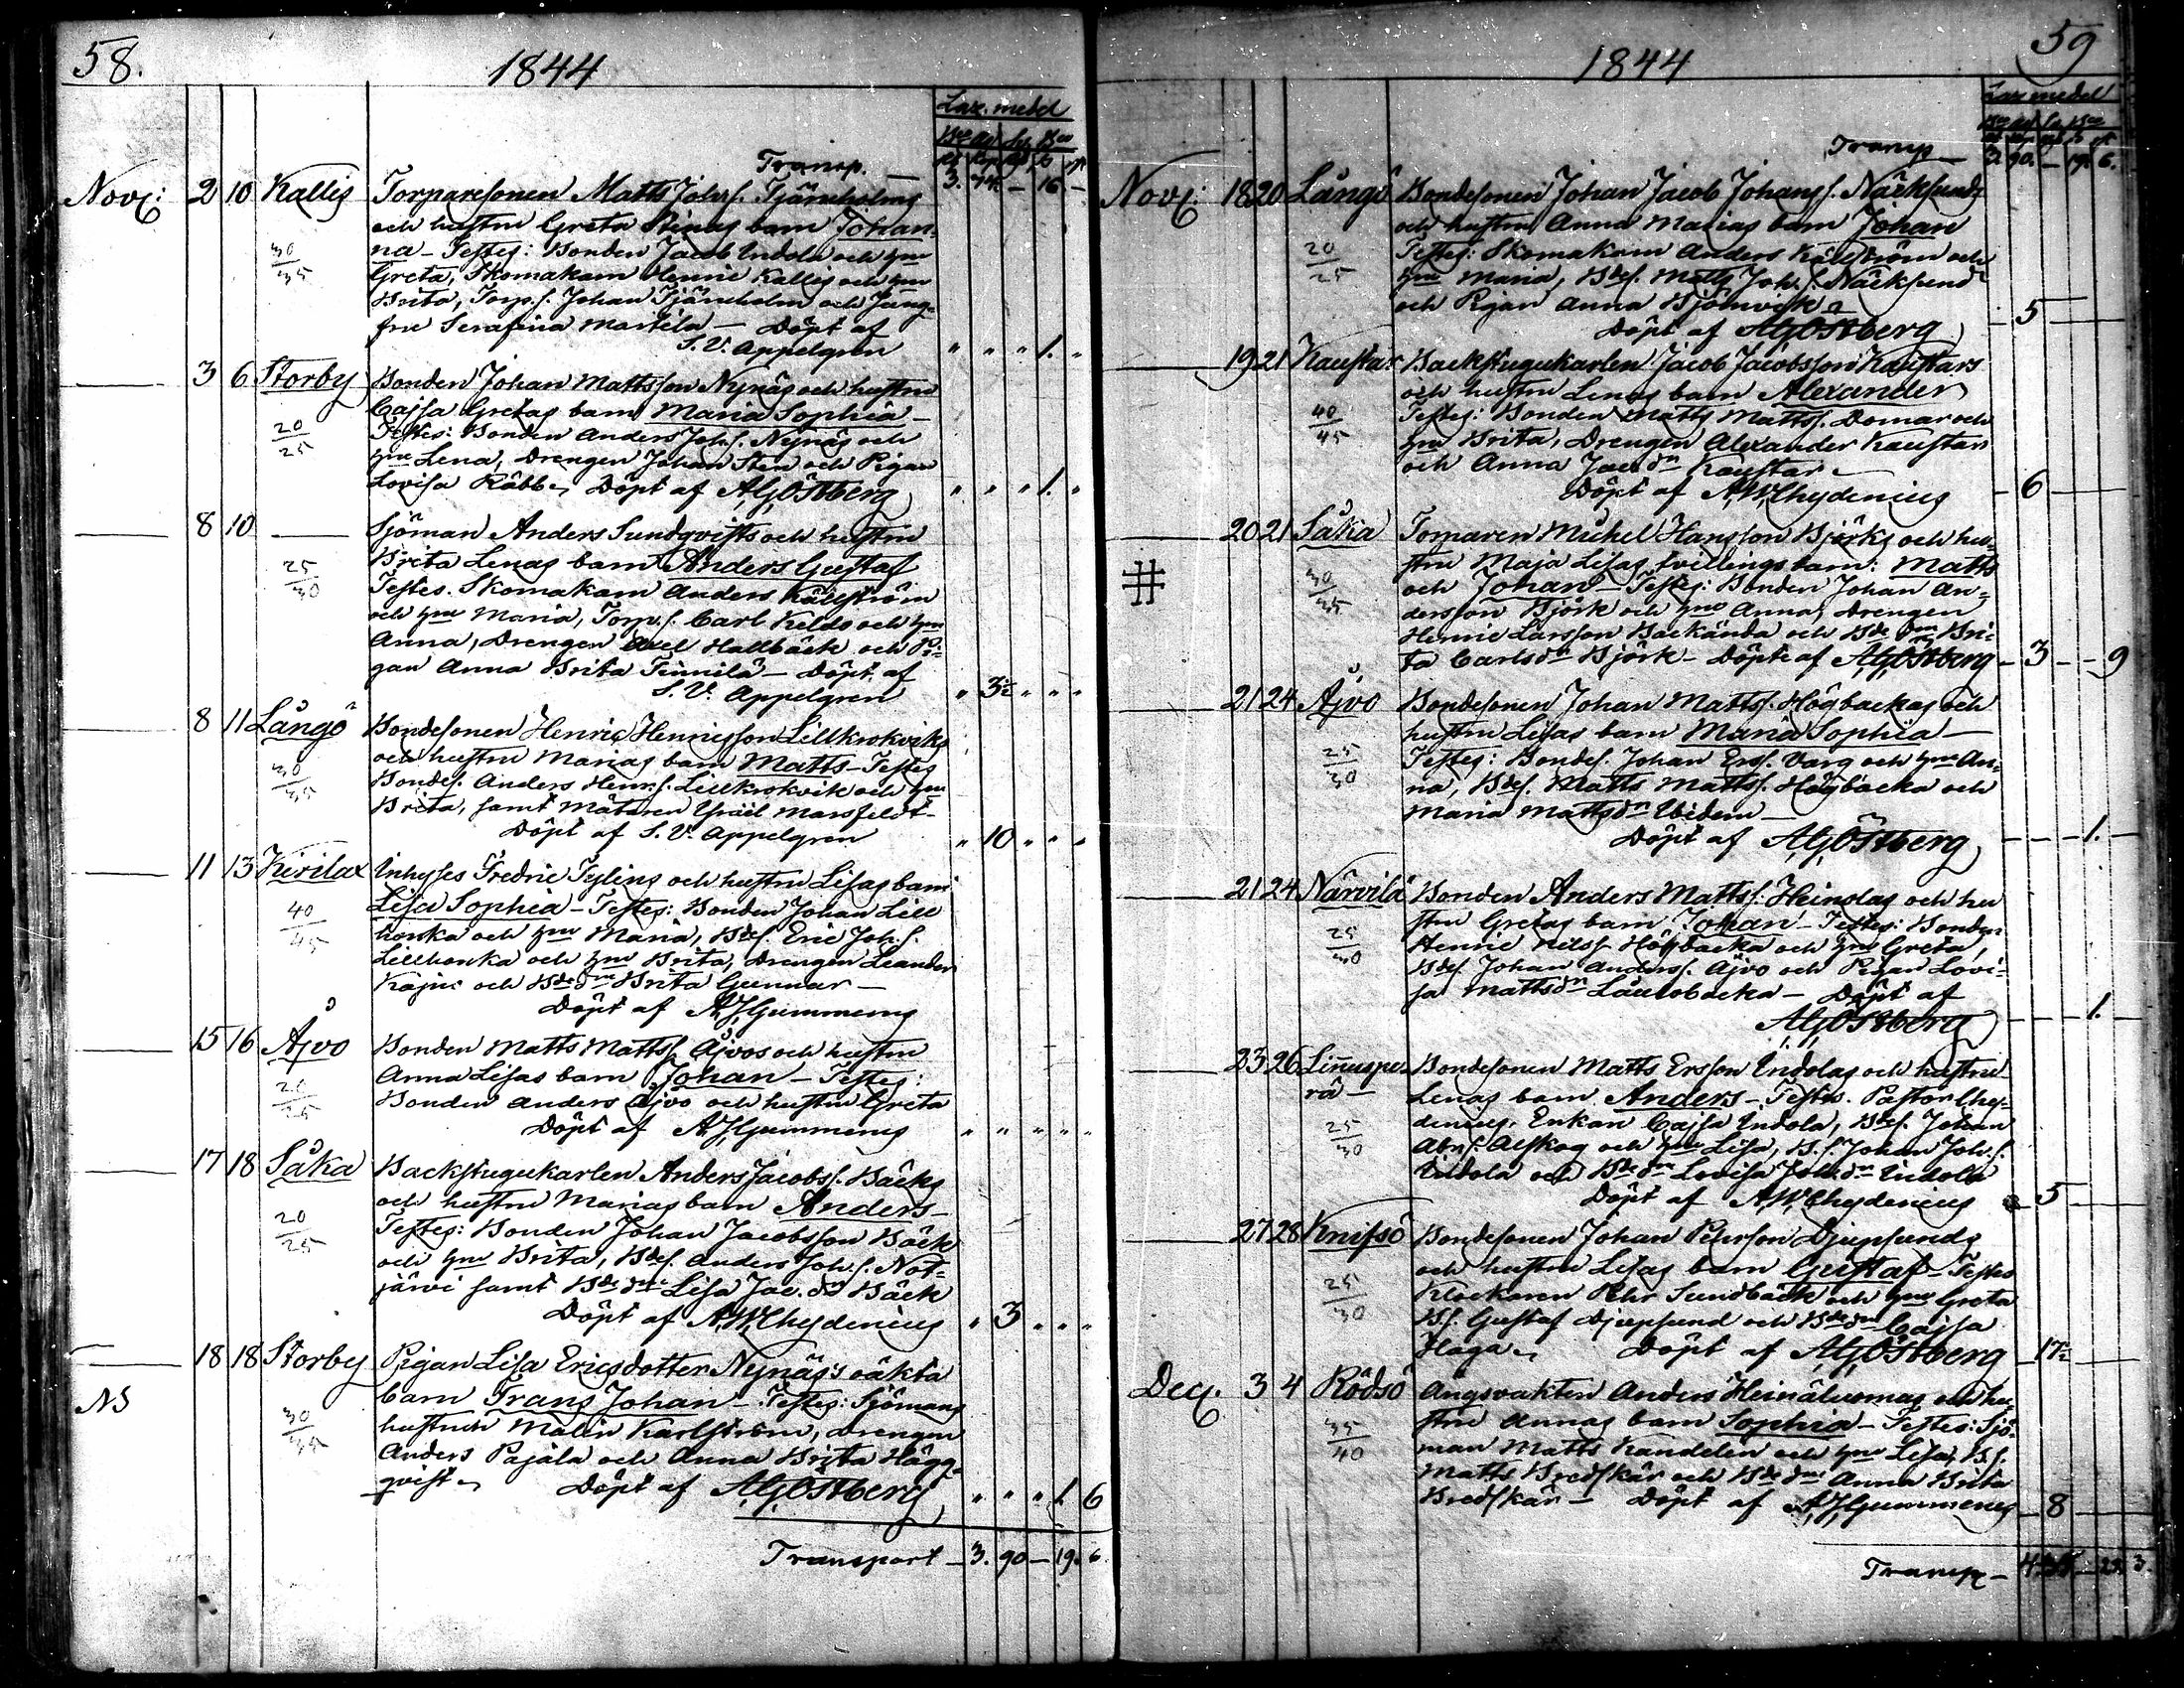 58.
1844
Laz. medel
Transp. — 3. 74. — 16 —
Nov: 2 10 Kallis Torparesonen Matts Johs s. Tjärnholms
och hustru Greta Stinas barn Johan-
30/35 na — Testes: Bonden Jacob Indola och hu
Greta, Skomakarn Henric Kallis och hu
Brita, Torp. s. Johan Tjärnholm och Jung-
fru Serafina Martela — Döpt af
S. V. Appelgren " " " 1. "
3 6 Storby Bonden Johan Mattsson Nynäs och hustru
Cajsa Gretas barn Maria Sophia —
20/25 Testes: Bonden Anders Joh. s. Nynäs och
hu Lena, Drengen Johan Sten och Pigan
Lovisa Räbb — Döpt af A G Östberg " " " 1. "
8 10 — Sjöman Anders Sundqvists och hustru
Brita Lenas barn Anders Gustaf
25/30 Testes. Skomakarn Anders Källström
och hu Maria, Torp. s. Carl Keldo och hu
Anna, Drengen Axel Hallbäck och Pi-
gan Anna Brita Finnilä — Döpt af
S. V. Appelgren " 3½ " " "
8 11 Långö Bondesonen Henric Henricsson Lillkrokviks
och hustru Marias barn Matts — Testes
30/35 Bondes. Anders Henr. s. Lillkrokvik och hu
Brita, samt Mätaren Israël Marsfeldt —
Döpt af S. V. Appelgren " 10 " " "
11 13 Kirilax Inhyses Fredric Tylins och hustru Lisas barn
Lisa Sophia — Testes: Bonden Johan Lill
40/45 honka och hu Maria, Bdes. Eric Joh. s.
Lillhonka och hu Brita, Drengen Leander
Kajus och Bde dn Brita Gunnar —
Döpt af A J Gummerus
15 16 Åjvo Bonden Matts Mattss. Åjvos och hustru
Anna Lisas barn Johan — Testes:
20/25 Bonden Anders Åjvo och hustru Greta
Döpt af A J Gummerus " " " " "
17 18 Såka Backstugukarlen Anders Jacobs s. Bäcks
och hustru Marias barn Anders —
20/25 Testes: Bonden Johan Jacobsson Bäck
och hu Brita, Bdes. Anders Joh. s. Not-
järvi samt Bde dn Lisa Jac. dn Bäck
Döpt af A W Chydenius " 3 " " "
18 18 Storby Pigan Lisa Ericsdotter Nynäs's oäkta
NS barn Frans Johan — Testes: Sjömans
30/35 hustrun Malin Karlström, Drengen
Anders Pajala och Anna Brita Hägg-
qvist — Döpt af A G Östberg " " " 1. 6
Transport — 3. 90 — 19. 6.
1844
59
Laz medel
Transp — 3. 90. — 19. 6.
Nov: 18 20 Långö Bondesonen Johan Jacob Johans s. Näcksunds
och hustru Anna Marias barn Johan
20/25 Testes: Skomakarn Anders Källström och
hu Maria, Bdes. Matts Joh. s. Näcksund
och Pigan Anna Björnvik —
Döpt af A G Östberg — 5 —
19 21 Kaustar Backstugukarlen Jacob Jacobsson Kaustars
och hustru Lenas barn Alexander
40/45 Testes: Bonden Matts Mattss. Domar och
hu Brita, Drengen Alexander Kaustar
och Anna Jac. dn Kaustar —
Döpt af A W Chydenius — 6 —
20 21 Såka Torparen Michel Hansson Björks och hu-
# stru Maja Lisas tvillingsbarn: Matts
30/35 och Johan — Testes: Bonden Johan An-
dersson Björk och hu Anna, Drengen
Henric Larsson Backända och Bde dn Bri-
ta Carls dn Björk — Döpte af A G Östberg — 3 — — 9
21 24 Åjvo Bondesonen Johan Mattss. Högbackas och
hustru Lisas barn Maria Sophia —
25/30 Testes: Bondes. Johan Erss. Varg och hu An-
na, Bdes. Matts Mattss. Högbacka och
Maria Matts dn Ibidem —
Döpt af A G Östberg — — — 1. —
21 24 Närvilä Bonden Anders Mattss. Heinolas och hu
stru Gretas barn Johan — Testes: Bonden
25/30 Henric Nilss. Högbacka och hu Greta,
Bdes. Johan Anderss. Åjvo och Pigan Lovi-
sa Matts dn Laurobacka — Döpt af
A G Östberg — — 1. —
23 26 Linuspe- Bondesonen Matts Ersson Indolas och hustru
rä — Lenas barn Anders — Testes. Pastor Chy-
25/30 denius, Enkan Cajsa Indola, Bdes. Johan
Abr. s. Alskog och hu Lisa, B. s. Johan Joh. s.
Indola och Bde dn Lovisa Joh. dn Indola
Döpt af A W Chydenius — 5 —
27 28 Knifsö Bondesonen Johan Pehrsson Djupsunds
och hustru Lisas barn Gustaf — Testes
25/30 Klockaren Pehr Sundbäck och hu Greta
B. s. Gustaf Djupsund och Bde dn Cajsa
Haga — Döpt af A G Östberg — 17½ —
Dec. 3 4 Rödsö Ängsvakten Anders Heinäluomas och hu-
stru Annas barn Sophia — Testes: Sjö-
35/40 man Matts Kandelin och hu Lisa, B. s.
Matts Bredskär och Bde dn Anna Brita
Bredskär — Döpt af A J Gummerus — 8 —
Transp —